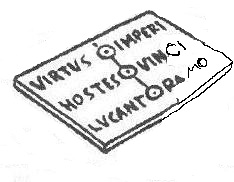 VIRTVS IMPERI
HOSTES VINCI
LVCANT